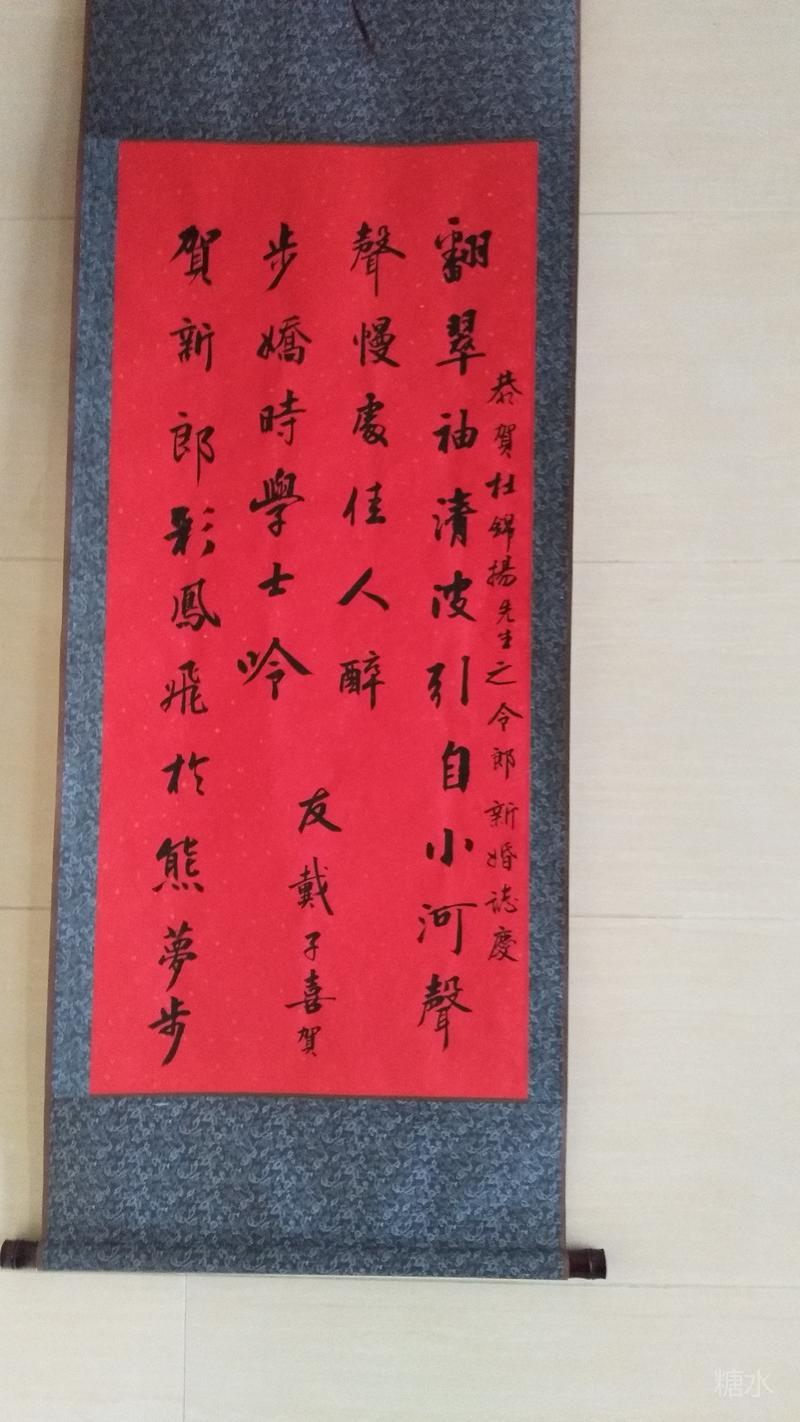 恭賀杜錦揚先生之令郎新婚誌慶
翻翠袖清波引自小河聲
聲慢處佳人醉
步嬌時學士吟
賀新郎彩鳳飛於熊夢步
友戴子喜賀
糖水